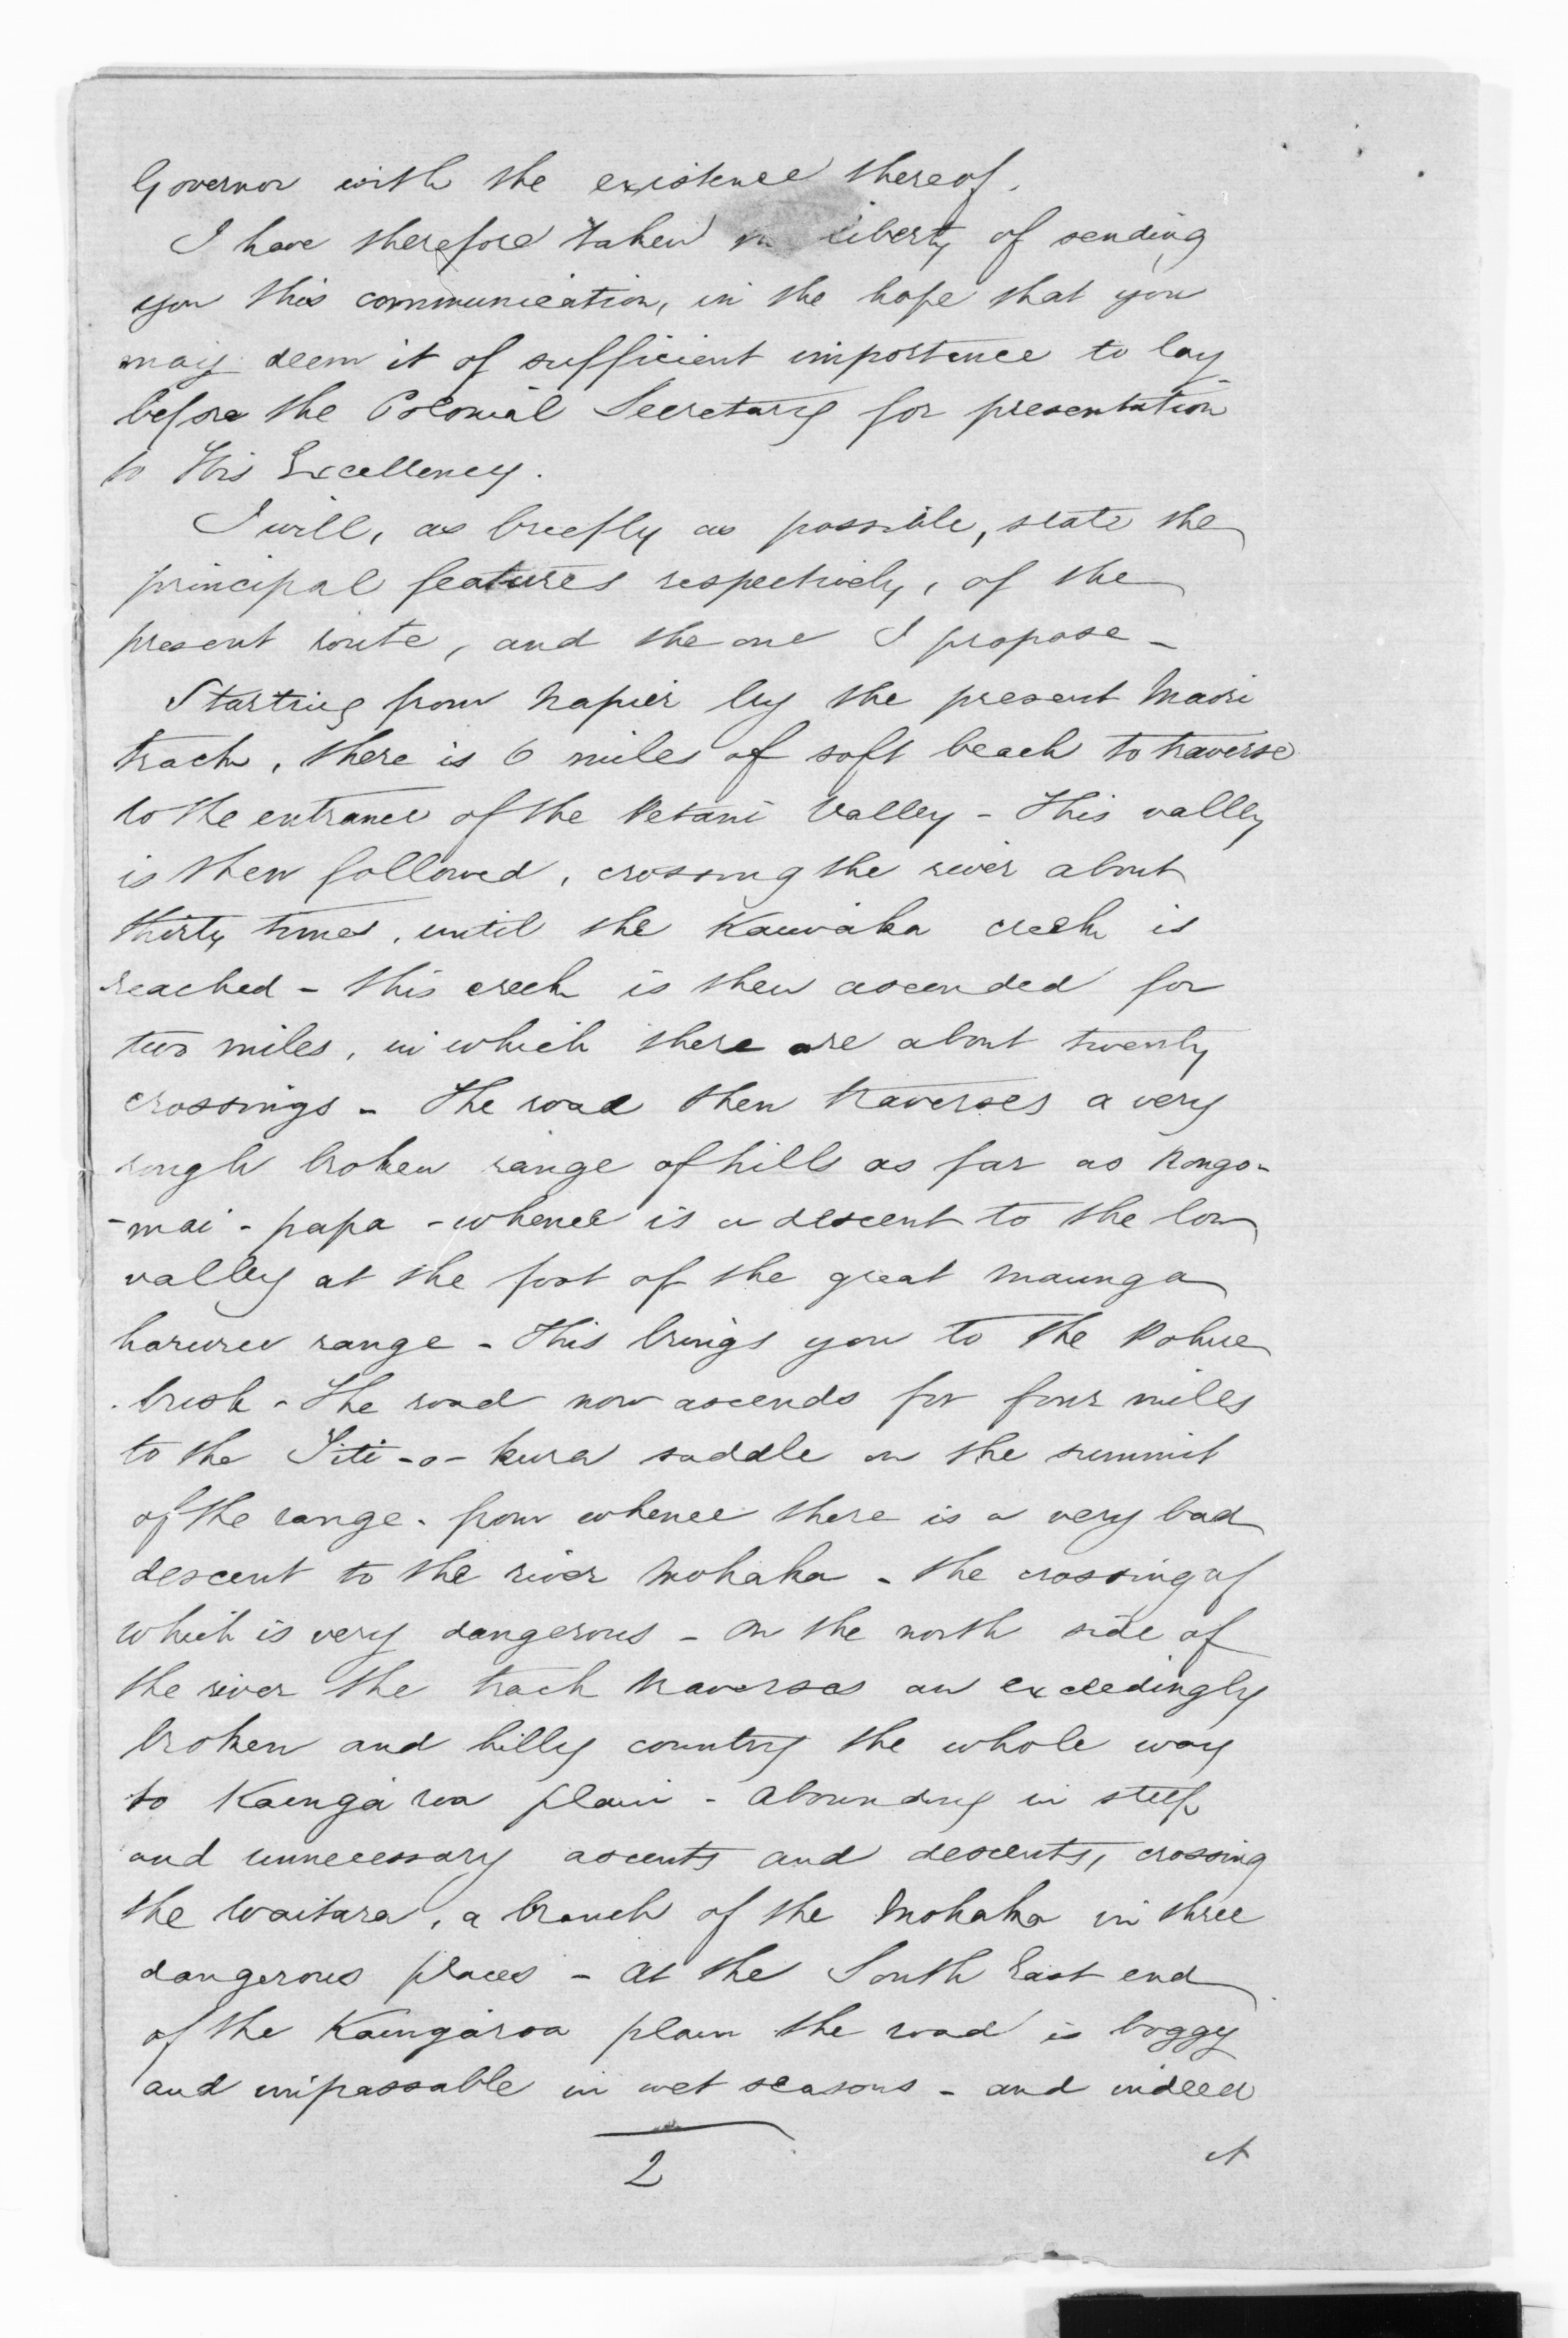 Governor with the existence thereof.
I have therefore taken liberty of sending
you this communication, in the hope that you
may deem it of sufficient importence to lay
before the Colonial Secretary for presentation
to His Excellency.
I will, as briefly as possible, state the
principal features respectively, of the
present route, and the one I propose -
Starting from Napier by the present Maori
track, there is 6 miles of soft beach to traverse
to the entrance of the Petani Valley - This valley
is then followed, crossing the river about
thirty times, until the Kauwaka creek is
reached - this creek is then ascended for
two miles, in which there are about twenty
crossings - The road then traverses a very
rough broken range of hills as far as Rongo-
-mai-papa - whence is a descent to the low
valley at the foot of the great Maunga
haruru range - This brings you to the Pohue
bush - The road now ascends for four miles
to the Titi-o-kura saddle on the summit
of the range. from whence there is a very bad
descent to the river Mohaka - the crossing of
which is very dangerous - On the north side of
the river the track traverses an exceedingly
broken and hilly country the whole way
to Kaingaroa plain - abounding in steep
and unnecessary ascents and descents, crossing
the Waitara, a branch of the Mohaka in three
dangerous places - at the South East end
of the Kaingaroa plain the road is boggy
and impassable in wet seasons - and indeed
2
it